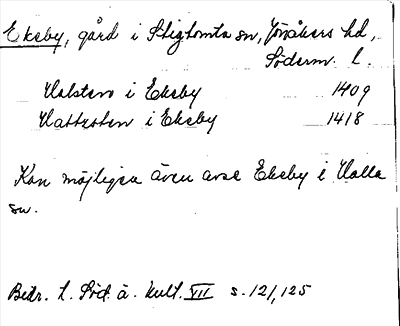 Ekeby, gård i Stigtomta sn, Jönåkers hd,
Söderm. l.
Halsten i Ekeby 1409
Hattsten i Ekeby 1418
Kan möjligen även avse Ekeby i Halla
sn.
Bidr. t. Söd. ä. kult. VII s. 121, 125